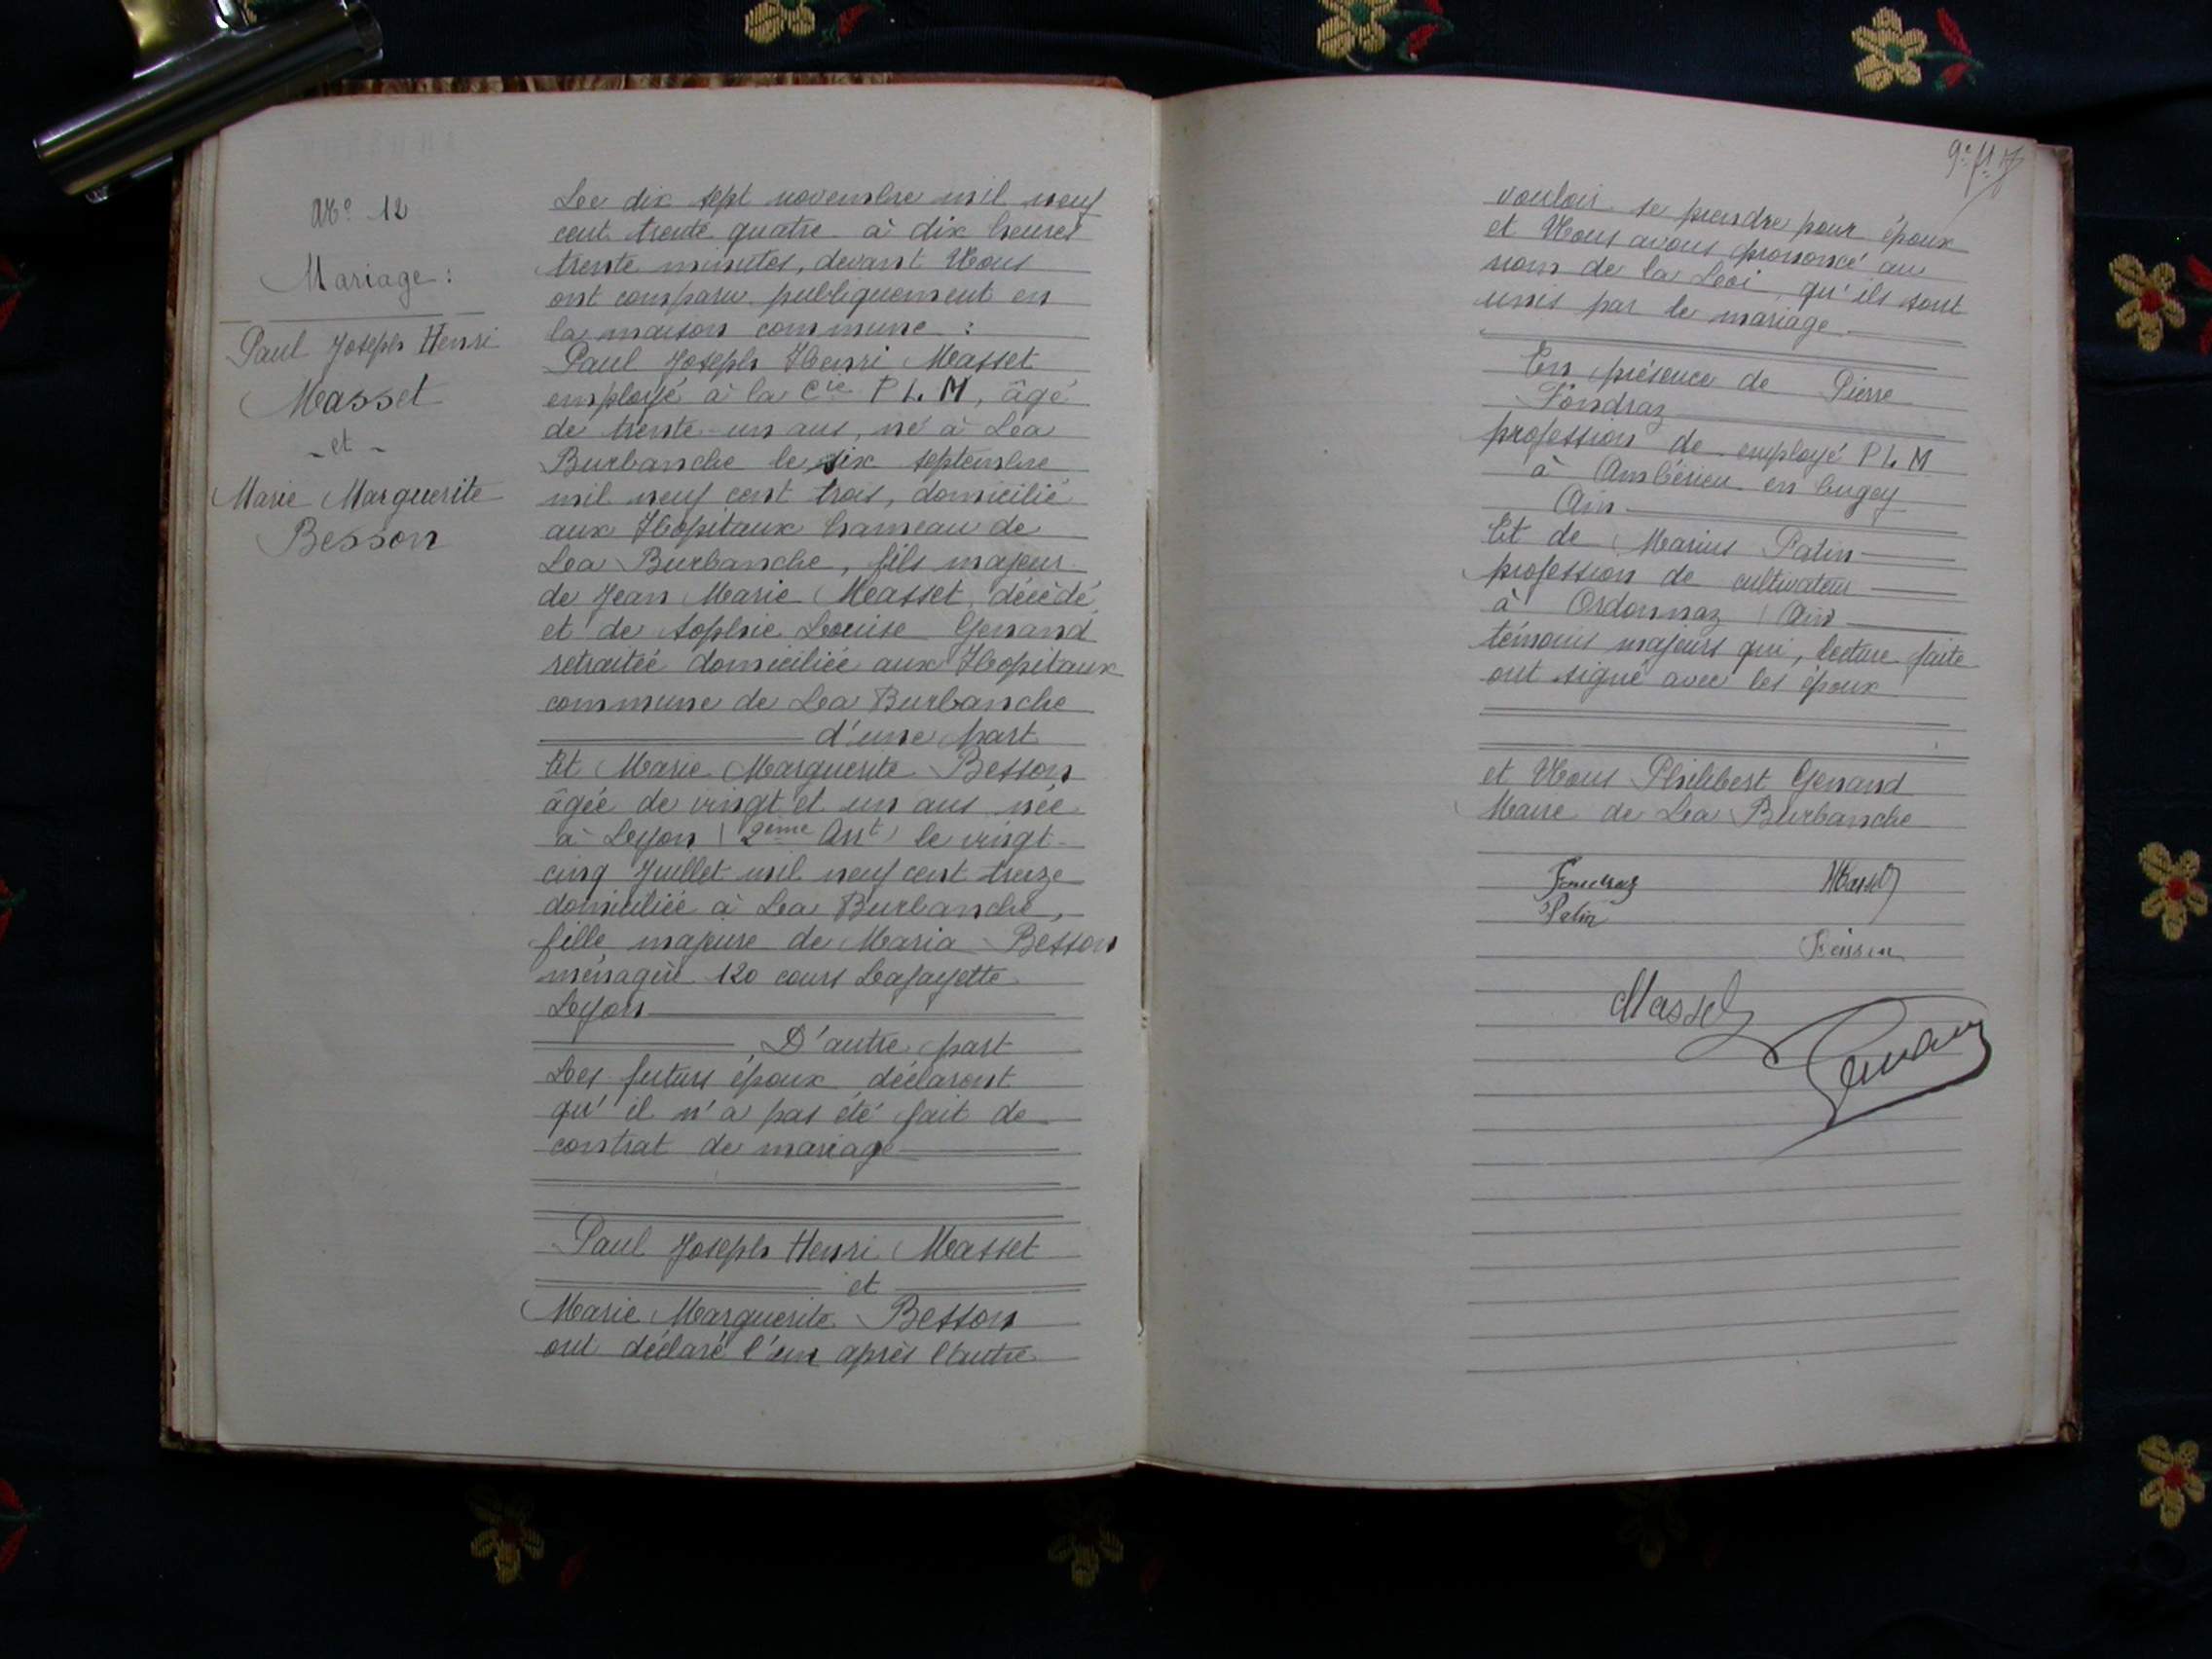 No 12
Mariage :
Paul Joseph Henri
Masset
- et -
Marie Marguerite
Besson
Le dix sept novembre mil neuf
cent trente quatre à dix heures
trente minutes, devant Nous
ont comparu publiquement en
la maison commune :
Paul Joseph Henri Masset
employé à la Cie P L M, âgé
de trente-un ans, né à La
Burbanche le six septembre
mil neuf cent trois, domicilié
aux Hopitaux hameau de
La Burbanche, fils majeur
de Jean Marie Masset, décédé
et de Sophie Louise Genand
retraitée domiciliée aux Hopitaux
commune de La Burbanche
d'une part
Et Marie Marguerite Besson
âgée de vingt et un ans née
à Lyon (2ème Arrt) le vingt
cinq Juillet mil neuf cent treize
domiciliée à La Burbanche,
fille majeure de Maria Besson
ménagère 120 cours Lafayette
Lyon
D'autre part
Les futurs époux déclaront
qu'il n'a pas été fait de
contrat de mariage
Paul Joseph Henri Masset
et
Marie Marguerite Besson
ont déclaré l'un après l'autre
vouloir se prendre pour époux
et Nous avons prononcé au
nom de la Loi, qu'ils sont
unis par le mariage
En présence de Pierre
Fondraz
profession de employé P L M
à Ambérieu en bugey
Ain
Et de Marius Patin
profession de cultivateur
à Ordonnaz (Ain
témoins majeurs qui, lecture faite
ont signé avec les époux
et Nous Philibert Genand
Maire de La Burbanche
Fondraz
Masset
Patin
Besson
Masset
Genand